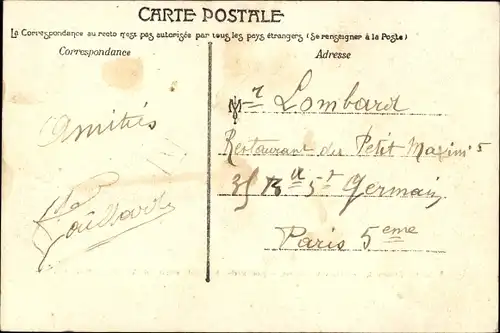 CARTE POSTALE
La Correspondance au recto n'est pas autorisée par tous les pays étrangers (Se renseigner à la Poste)
Correspondance
Adresse
Amitiés
Mr Lombard
Restaurant du Petit Maxim's
35 Bd St Germain
Paris 5eme